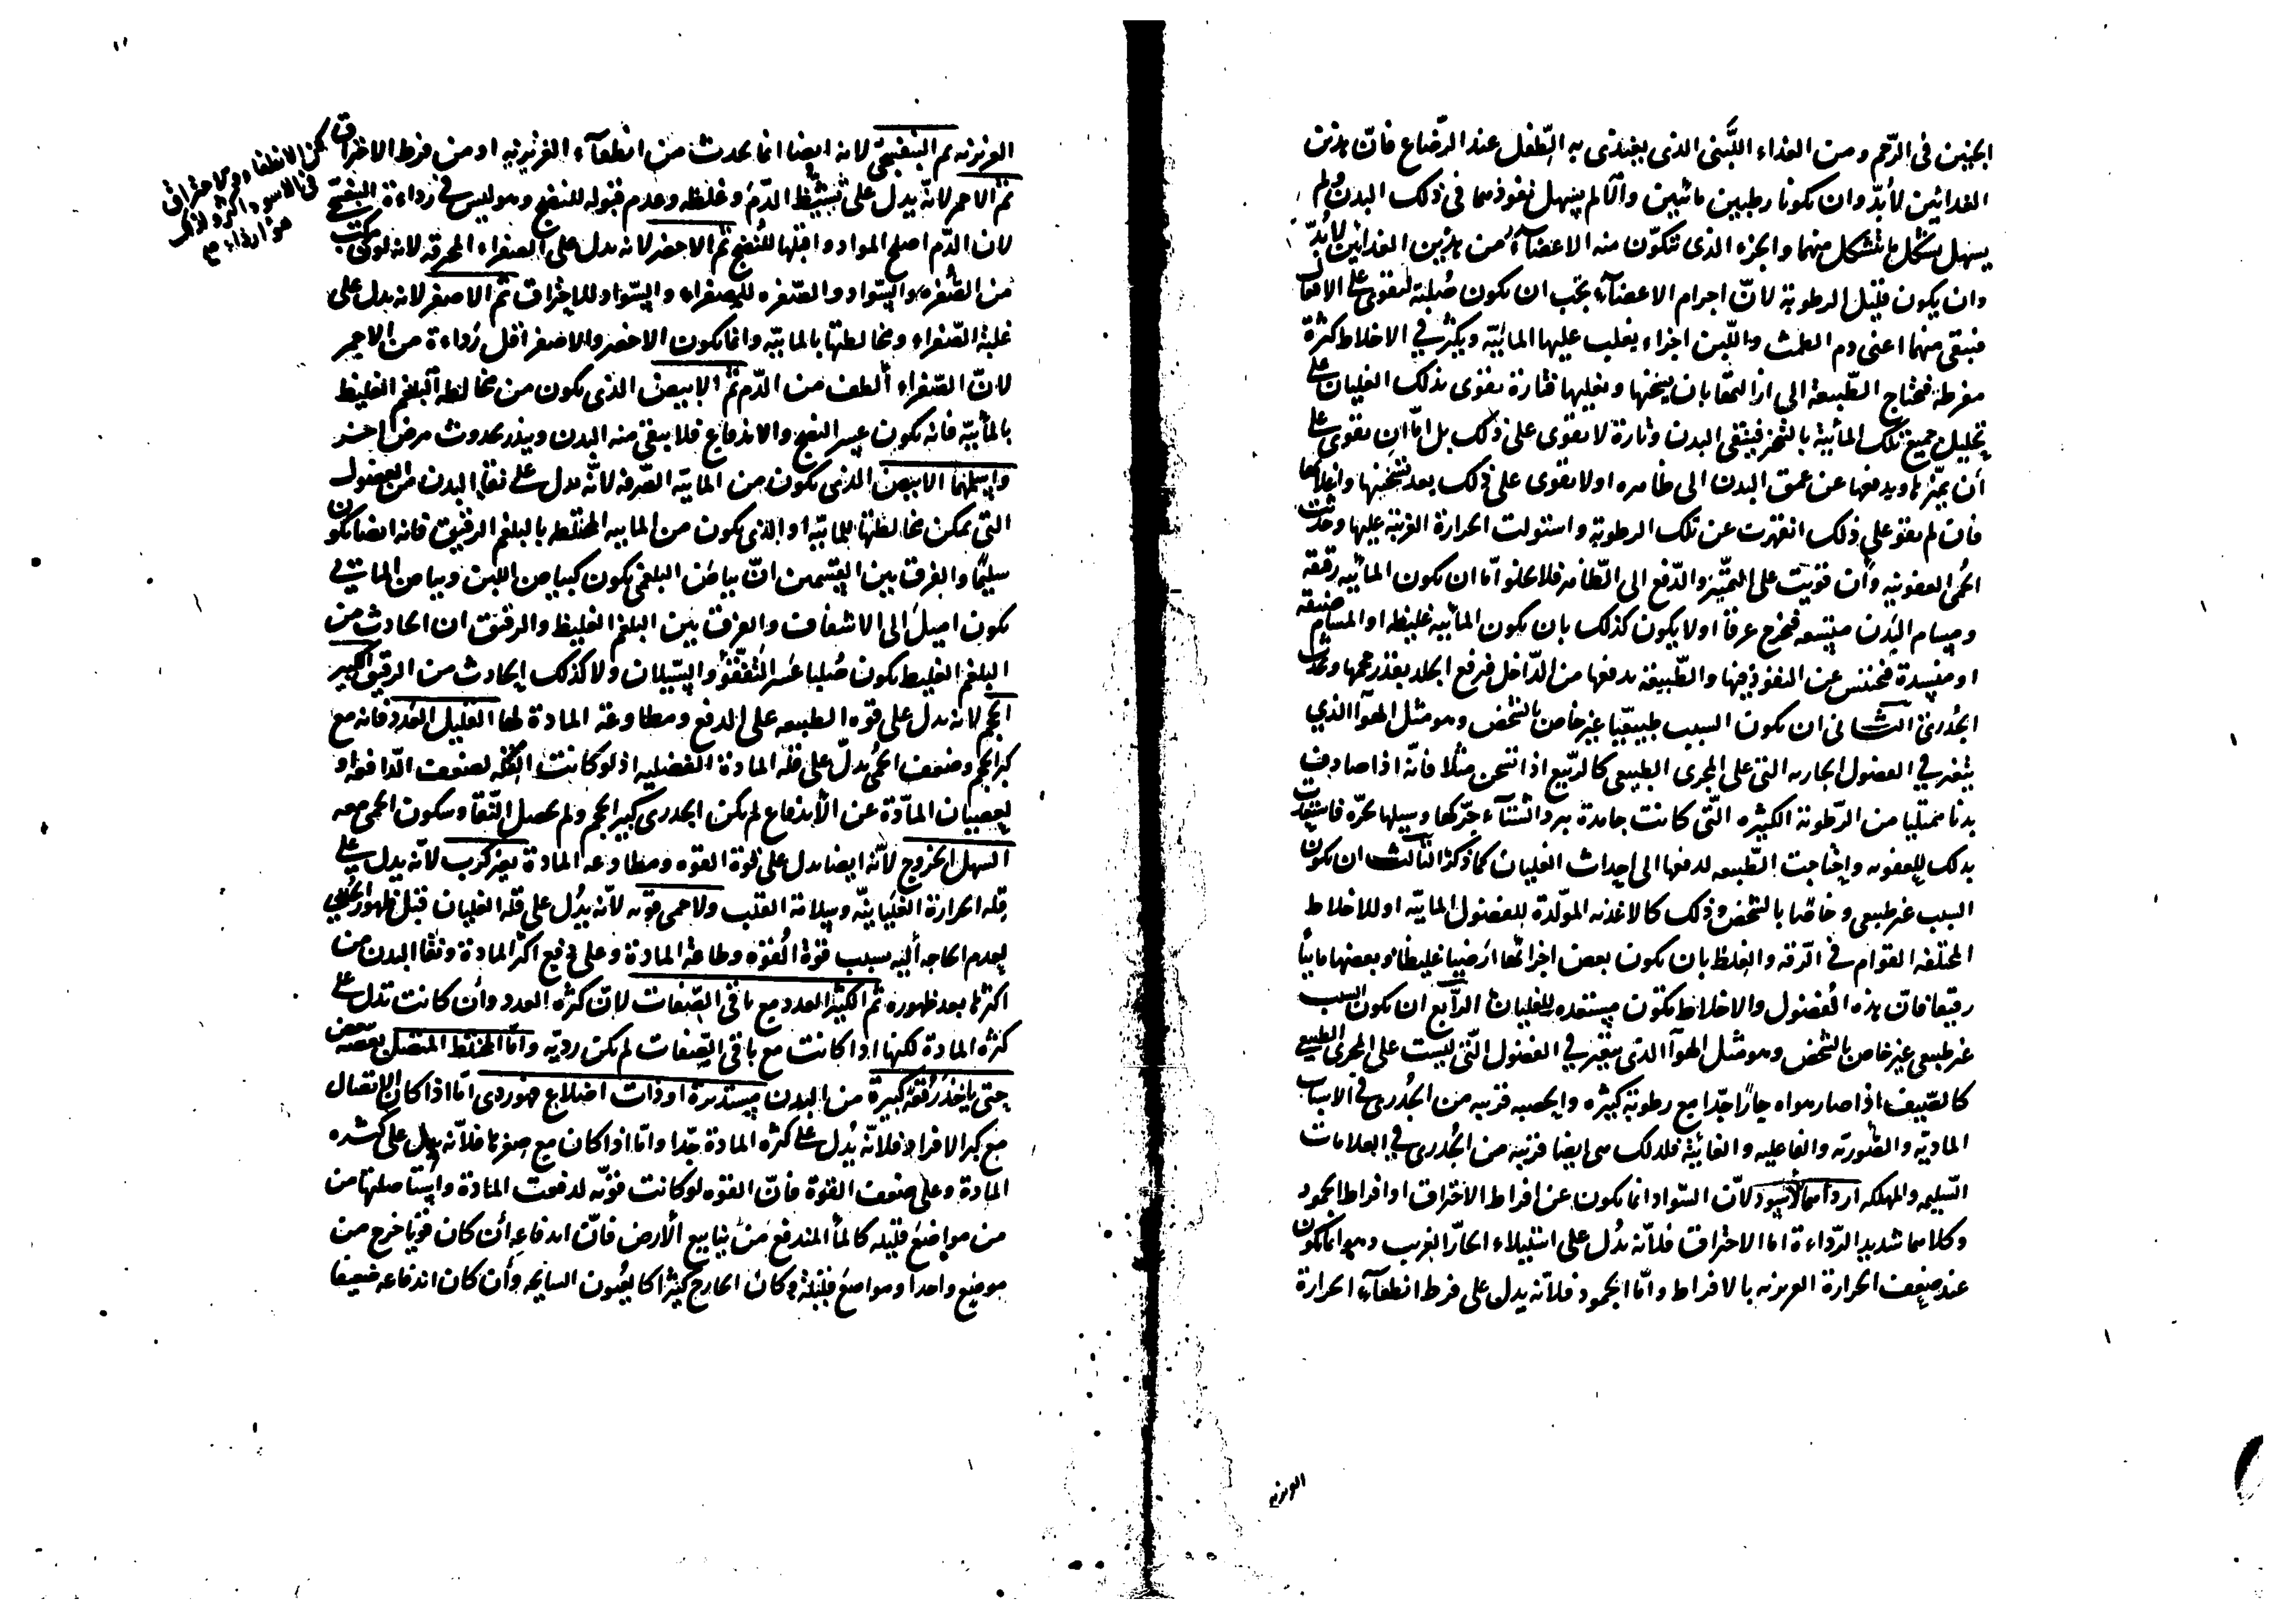 الجنين فى الرّحم ومن الغذاء اللّبنى الذى يغتذى به الطّفل عند الرّضاع فانّ هذين
الغذائين لابدّ وان يكونا رطبين مائيين والّا لم يسهل نفوذهما فى ذلك البدن ولم
يسهل تشكل ما يتشكل منهما والجزء الذى تتكوّن منه الاعضآء من هذين الغذائين لابدّ
وان يكون قليل الرطوبة لانّ اجرام الاعضآء يجب ان يكون صُلبة لتقوى على الافعال
فيبقى منهما اعنى دم الطمث واللّبن اجزاء يغلب عليها المائيّة ويكثر فى الاخلاط كثرة
مفرطة فتحتاج الطّبيعة الى ازالتها بان يسخنها ويغليها فتارة يقوى بذلك الغليان على
تحليل جميع تلك المائية بالتبخر فينقى البدن وتارة لا يقوى على ذلك بل امّا ان يقوى على
ان يميّزها ويدفعها عن عمق البدن الى ظاهره اولا يقوى على ذلك بعد تسخنها واغلائها
فان لم يقو على ذلك انقهرت عن تلك الرطوبة واستولت الحرارة الغريبة عليها وحدثت
الحُمى العفونيه وان قويت على التميّز والدّفع الى الظّاهر فلا يخلو امّا ان يكون المائيه رقيقة
ومسام البَدن متسعه فتخرج عرقا اولا يكون كذلك بان يكون المائيه غليظه او المسام ضيقه
او منسدة فتحتبس عن النفوذ فيها والطّبيعة تدفعها من الدّاخل فيرفع الجلد بقدر حجمها ويحدث
الجُدرىّ الثانى ان يكون السبب طبيعيّا غير خاص بالشخص وهو مثل الهوآ الذى
يتغير فى الفصول الجاريه التى على المجرى الطبيعى كالربيع اذا تسخن مثلا فانّه اذا صادف
بدنا ممتليا من الرّطوبة الكثيره الّتى كانت جامدة ببرد الشتآء حرّكها وسيلها بحرّه فاستعدت
بذلك للعفونه واحتاجت الطّبيعه لدفعها الى احداث الغليان كما ذكر الثالث ان يكون
السبب غير طبيعى وخاصّا بالشخص وذلك كالاغذيه المولّدة للفضول المائيّه او للاخلاط
المختلفه القوام فى الرّقه والغلظ بان يكون بعض اجزائها ارضيا غليظا وبعضها مايئا
رقيقا فانّ هذه الفضول والاخلاط تكون مستعده للغليان الرّابع ان يكون السبب
غير طبيعى غير خاص بالشخص وهو مثل الهوآ الذى يتغير فى الفصول الّتى ليست على المجرى الطبيعى
كالصّيف اذا صار هواه حارًا جدّا مع رطوبة كثيره والحصبه قريبه من الجُدرى فى الاسباب
الماديّه والصّوريّه والفاعليه والغائيّة فلذلك هى ايضا قريبه من الجُدرى فى العلامات
السّليمه والمهلكه ارداهما الاسود لانّ السّواد انما يكون عن افراط الاحتراق او افراط الجمود
وكلاهما شديد الرّداءة اما الاحتراق فلانّه يدُل على استيلاء الحارّ الغريب وهو انما يكون
عند ضعف الحرارة الغريزيه بالافراط وامّا الجمود فلانّه يدل على فرط انطفآء الحرارة
الغريزيه
الغريزيه ثم البنفسجىّ لانه ايضا انما يحدث من انطفآء الغريزيه او من فرط الاحتراق
لكن الانطفاء والاحتراق
فى الاسود اكثر ولذلك
هو اردأ
ثم الاحمر لانّه يدل على تشيّظ الدّم وغلظه وعدم قبوله للنضج وهو ليس فى رداءة البنفسجى
لان الدّم اصلح المواد واقبلها للنُضج ثم الاخضر لانه يدل على الصفراء المحرقه لانه لون مركب
من الصّفره والسّواد والصّفره للصفراء والسّواد للاحتراق ثم الاصفر لانه يدل على
غلبة الصّفراء ومخالطتها بالمائيّه وانما يكون الاخضر والاصفر اقل رَداءة من الاحمر
لانّ الصّفراء ألطف من الدّم ثم الابيض الذى يكون من مخالطه البلغم الغليظ
بالمائيّه فانه يكون عسر النضج والاندفاع فلا ينقى منه البدن وينذر بحدوث مرض اخر
واسلمها الابيض الذى يكون من المائيّه الصّرفه لانّه يدل على نقاء البدن من الفضول
التى يمكن مخالطتها للمائيّه او الذى يكون من المائيه المختلطه بالبلغم الرقيق فانه ايضا يكون
سليمًا والفرق بين القسمين انّ بياض البلغمى يكون كبياض اللبن وبياض المائى
يكون اميلَ الى الاشفاف والفرق بين البلغم الغليظ والرقيق ان الحادث من
البلغم الغليظ يكون صُلبا عَسر التفقّؤ والسّيلان ولا كذلك الحادث من الرقيق الكبير
الحجم لانه يدل على قوه الطبيعه على الدفع ومطاوعة المادة لها القليل العَدد فانه مع
كبر الحجم وضعف الحُمى يدلّ على قله المادة الفضليه اذ لو كانت القلّه لضعف الدّافعه او
لعصيان المادّة عن الاندفاع لم يكن الجدرى كبير الحجم ولم يحصل النّقا وسكون الحمى معه
السهل الخروج لانّه ايضا يدل على قوة القوه ومطاوعه المادة بغير كرب لانّه يدل على
قله الحرارة الغليانيّه وسلامة القلب ولا حمى قويه لانّه يدُل على قله الغليان قبل ظهور الجُدرى
لعدم الحاجه اليه بسبب قوّة القوّه وطاعة المادة وعلى دفع اكثر المادة ونقا البدن من
اكثرها بعد ظهوره ثم الكثير العدد مع باقى الصّفات لانّ كثره العدد وان كانت تدل على
كثره المادة لكنها اذا كانت مع باقى الصّفات لم يكن رديّه وامّا المختلط المتصل بعضه ببعض
حتى ياخذ رُقعَة كبيرة من البدن مستديرة او ذات اضلاع فهو ردى امّا اذا كان الاتصال
مع كبر الافراد فلانّه يدُل على كثره المادة جدّا وامّا اذا كان مع صغرها فلانّه يدل على كثره
المادة وعلى ضعف القوة فانّ القوه لو كانت قويّه لدفعت المادة واستاصلتها من
من مواضعَ قليله كالمآ المندفع من ينابيع الارض فانّ اندفاعه ان كان قويّا خرج من
موضع واحدا ومواضعَ قليلة وكان الخارج كثيرًا كالعُيون السايحه وان كان اندفاعه ضعيفا